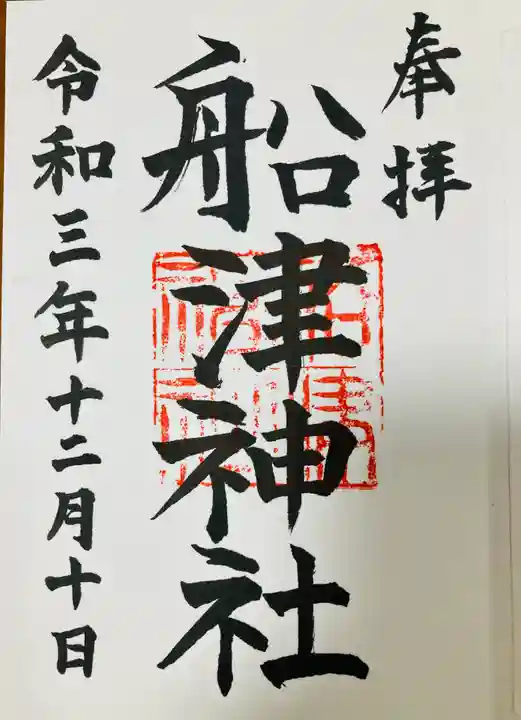 奉拝
船津神社
令和三年十二月十日